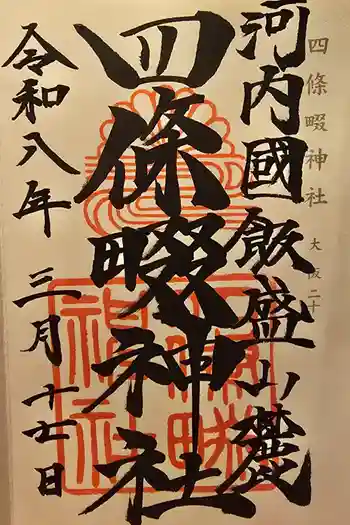 四條畷神社 大阪二十
河内國飯盛山麓
四條畷神社
令和八年 三月 十七日
四條畷神社